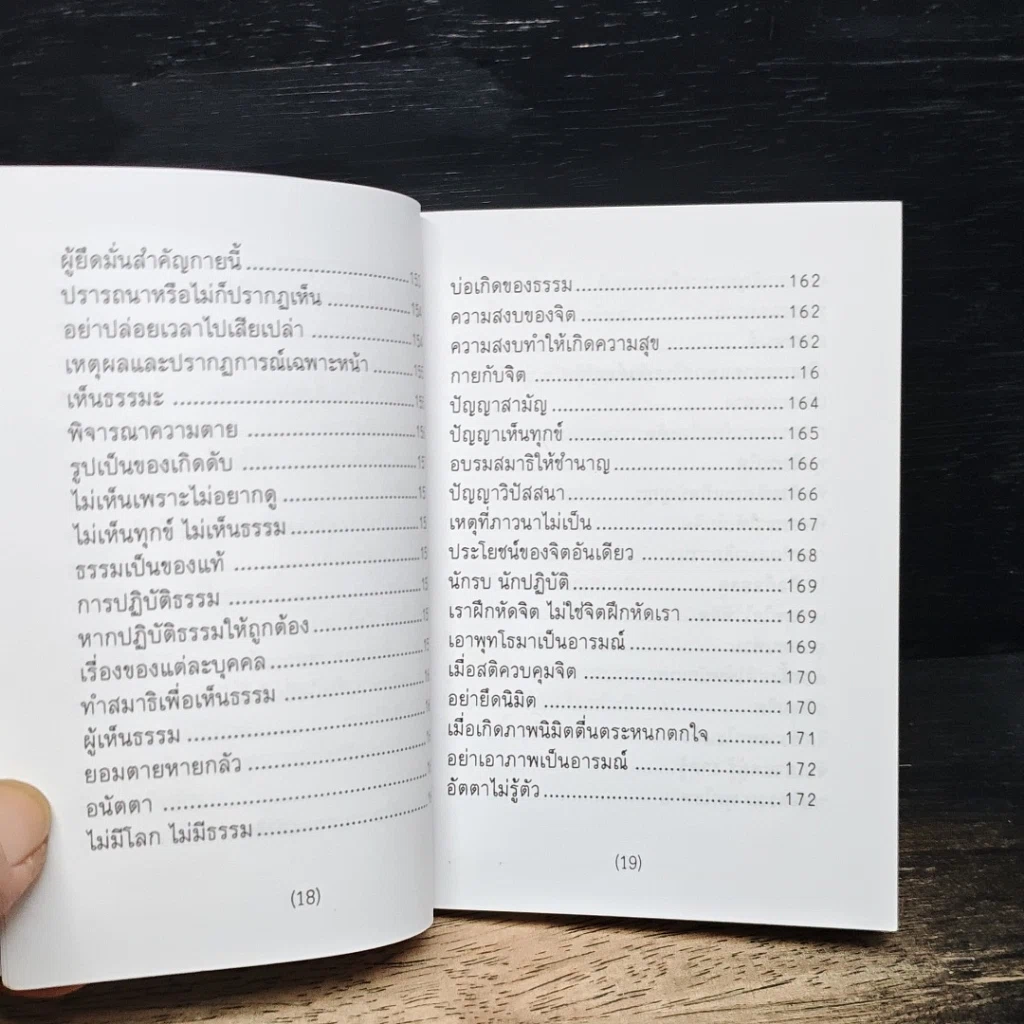 ผู้ยึดมั่นสำคัญกายนี้
ปรารถนาหรือไม่ก็ปรากฏเห็น ........................ 154
อย่าปล่อยเวลาไปเสียเปล่า ........................ 154
เหตุผลและปรากฏการณ์เฉพาะหน้า
เห็นธรรมะ
พิจารณาความตาย
รูปเป็นของเกิดดับ
ไม่เห็นเพราะไม่อยากดู
ไม่เห็นทุกข์ ไม่เห็นธรรม
ธรรมเป็นของแท้
การปฏิบัติธรรม
หากปฏิบัติธรรมให้ถูกต้อง
เรื่องของแต่ละบุคคล
ทำสมาธิเพื่อเห็นธรรม
ผู้เห็นธรรม
ยอมตายหายกลัว
อนัตตา
ไม่มีโลก ไม่มีธรรม
(18)
บ่อเกิดของธรรม ........................ 162
ความสงบของจิต ........................ 162
ความสงบทำให้เกิดความสุข ........................ 162
กายกับจิต ........................ 16
ปัญญาสามัญ ........................ 164
ปัญญาเห็นทุกข์ ........................ 165
อบรมสมาธิให้ชำนาญ ........................ 166
ปัญญาวิปัสสนา ........................ 166
เหตุที่ภาวนาไม่เป็น ........................ 167
ประโยชน์ของจิตอันเดียว ........................ 168
นักรบ นักปฏิบัติ ........................ 169
เราฝึกหัดจิต ไม่ใช่จิตฝึกหัดเรา ........................ 169
เอาพุทโธมาเป็นอารมณ์ ........................ 169
เมื่อสติควบคุมจิต ........................ 170
อย่ายึดนิมิต ........................ 170
เมื่อเกิดภาพนิมิตตื่นตระหนกตกใจ ........................ 171
อย่าเอาภาพเป็นอารมณ์ ........................ 172
อัตตาไม่รู้ตัว ........................ 172
(19)